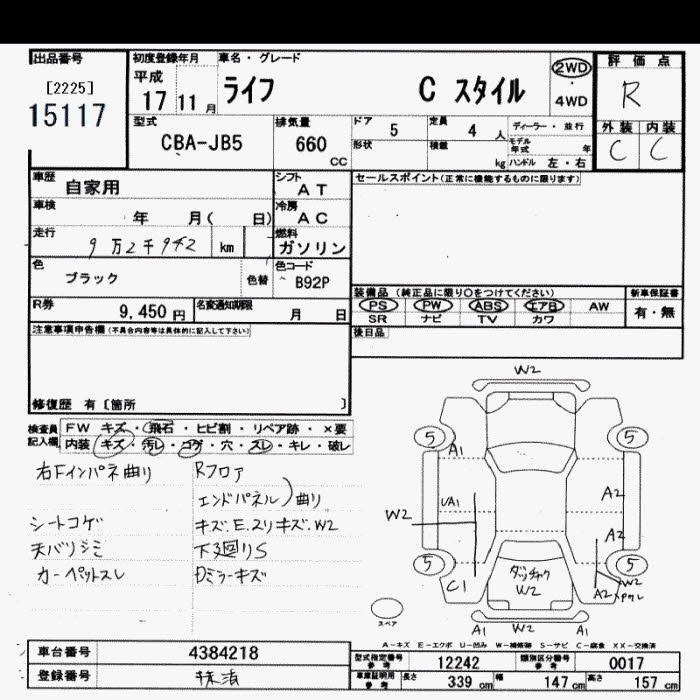 出品番号
[2225]
15117
初度登録年月
平成
17 11 月
車名・グレード
ライフ C スタイル
2WD
・
4WD
評価点
R
外装 内装
C C
型式
CBA-JB5
排気量
660
cc
ドア
5
定員
4 人
ディーラー・並行
形状
積載
kg
モデル年式
年
ハンドル 左・右
車歴
自家用
シフト
AT
セールスポイント(正常に機能するものに限ります)
車検
年 月( 日)
冷房
AC
走行
9万2千942 km
燃料
ガソリン
色
ブラック
色替
色コード
B92P
R券
9,450 円
名変通知期限
月 日
装備品 (純正品に限り○をつけてください)
新車保証書
PS PW ABS エアB AW
有・無
SR ナビ TV カワ
後日品
注意事項申告欄(不具合内容等は具体的に記入して下さい)
修復歴 有〔箇所 〕
検査員
記入欄
FW キズ・飛石・ヒビ割・リペア跡・×要
内装 キズ・汚レ・コゲ・穴・スレ・キレ・破レ
右Fインパネ曲り
Rフロア
エンドパネル)曲り
シートコゲ
キズ.E.スリキズ.W2
天バリシミ
下廻りS
カーペットスレ
Dミラーキズ
W2
5 5
A1
UA1
A2
W2
A2
5 5
C1
ダッチャク
W2
W2
A2
スペア
A1 W2 A1
A-キズ E-エクボ U-凹み W-補修跡 S-サビ C-腐食 XX-交換済
車台番号
4384218
登録番号
抹消
型式指定番号
参考
12242
類別区分番号
参考
0017
車庫証明用
参考
長さ
339 cm
幅
147 cm
高さ
157 cm